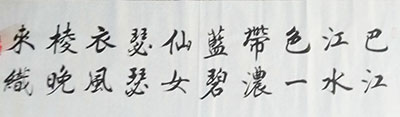 巴江
江水
色一
帶濃
藍碧
仙女
瑟瑟
衣風
梭晚
來織